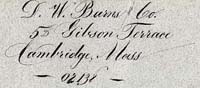 D. W. Burns & Co.
5 Gibson Terrace
Cambridge, Mass
— 02138 —